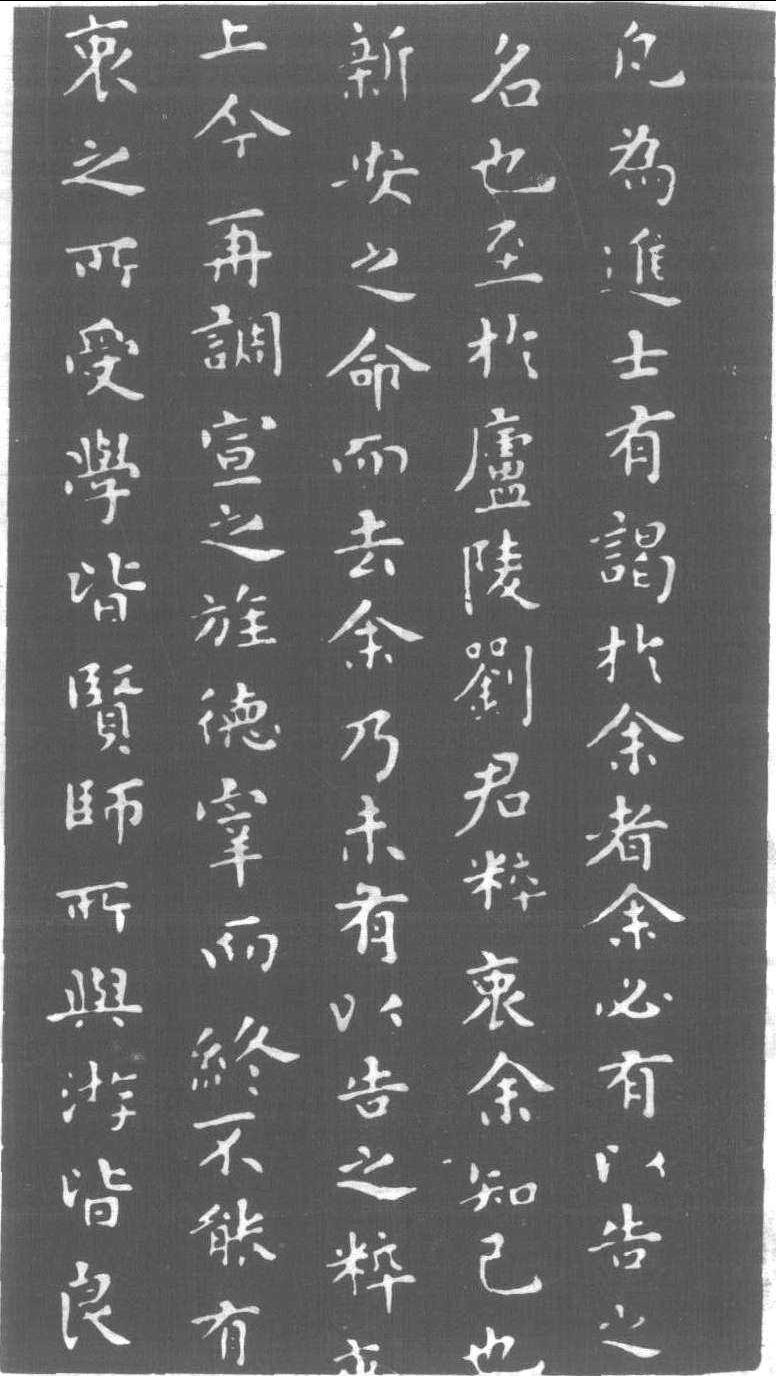 凡為進士有謁於余者余必有以告之
名也至於廬陵劉君粹衷余知己也
新安之命而去余乃未有以告之粹衷
上今再調宣之旌德宰而終不能有
衷之所受學皆賢師所與游皆良